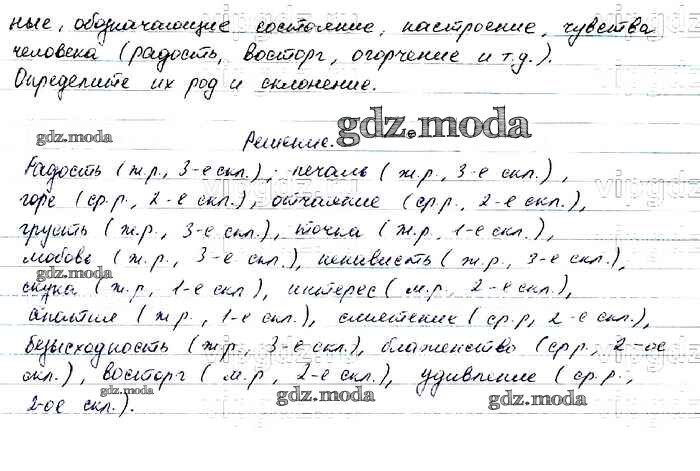 ные, обозначающие состояние, настроение, чувства
человека (радость, восторг, огорчение и т.д.).
Определите их род и склонение.
gdz.moda
Решение.
gdz.moda
Радость (ж.р., 3-е скл.), печаль (ж.р., 3-е скл.),
vipgdz
горе (ср.р., 2-е скл.), отчаяние (ср.р., 2-е скл.),
грусть (ж.р., 3-е скл.), тоска (ж.р., 1-е скл.),
любовь (ж.р., 3-е скл.), ненависть (ж.р., 3-е скл.),
gdz.moda
скука (ж.р., 1-е скл.), интерес (м.р., 2-е скл.),
апатия (ж.р., 1-е скл.), смятение (ср.р, 2-е скл.),
безысходность (ж.р., 3-е скл.), блаженство (ср.р., 2-ое
скл.), восторг (м.р., 2-е скл.), удивление (ср.р.,
gdz.moda
gdz.moda
2-ое скл.).